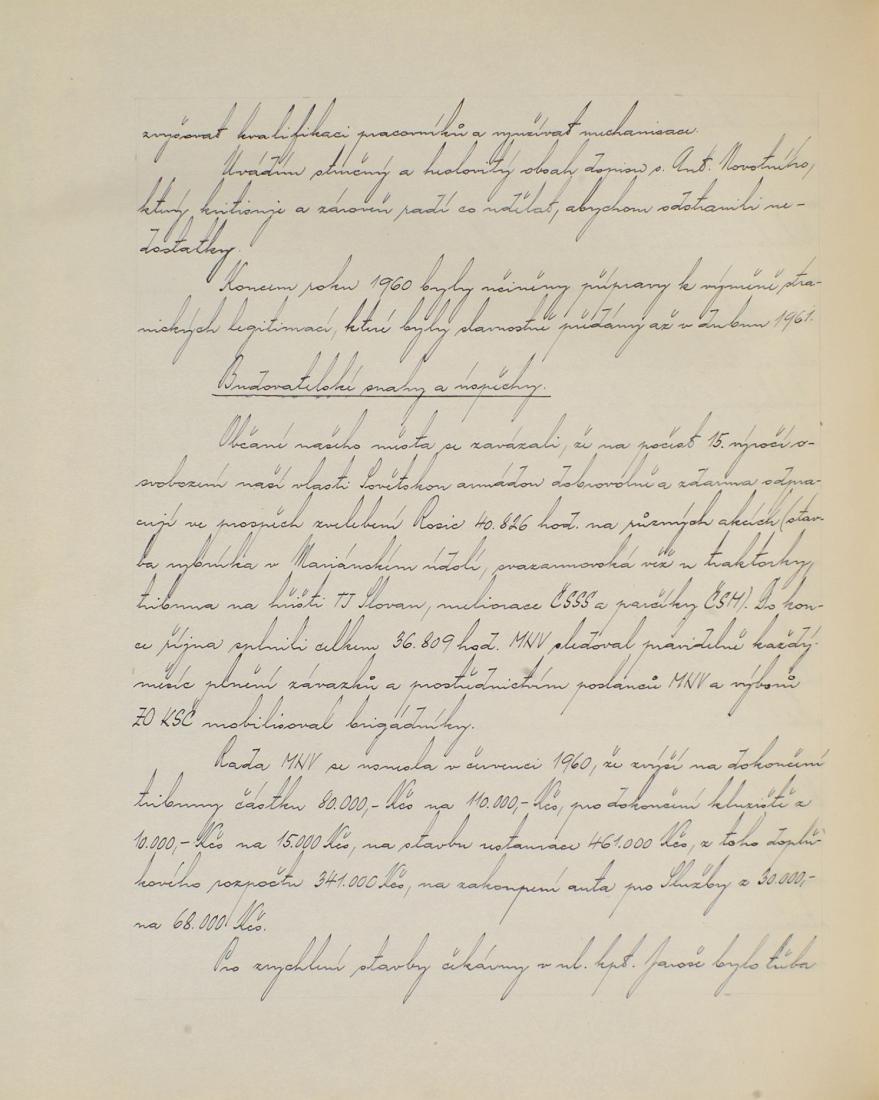 zvyšovat kvalifikaci pracovníků a využívat mechanisace.
Uvádím stručný a heslovitý obsah dopisu s. Ant. Novotného,
který kritisuje a zároveň radí co udělat, abychom odstranili ne-
dostatky.
Koncem roku 1960 byly učiněny přípravy k výměně stra-
nických legitimací, které byly slavnostně předány až v dubnu 1961.
Budovatelské snahy a úspěchy.
Občané našeho města se zavázali, že na počest 15. výročí o-
svobození naší vlasti Sovětskou armádou dobrovolně a zdarma odpra-
cují ve prospěch zvelebení Rosic 40.826 hod. na různých akcích (stav-
ba rybníka v Mariánském údolí, svazarmovská věž u traktorky,
tribuna na hřišti TJ Slovan, meliorace ČSSS a parčíky ČSM). Do kon-
ce října splnili celkem 36.809 hod. MNV sledoval pravidelně každý
měsíc plnění závazků a prostřednictvím poslanců MNV a výborů
ZO KSČ mobilisoval brigádníky.
Rada MNV se usnesla v červenci 1960, že zvýší na dokončení
tribuny částku 80.000,- Kčs na 110.000,- Kčs, pro dokončení kluziště z
10.000,- Kčs na 15.000 Kčs, na stavbu restaurace 461.000 Kčs, z toho doplň-
kového rozpočtu 341.000 Kčs, na zakoupení auta pro Služby z 30.000,-
na 68.000 Kčs.
Pro zrychlení stavby čekárny v ul. kpt. Jaroše bylo třeba